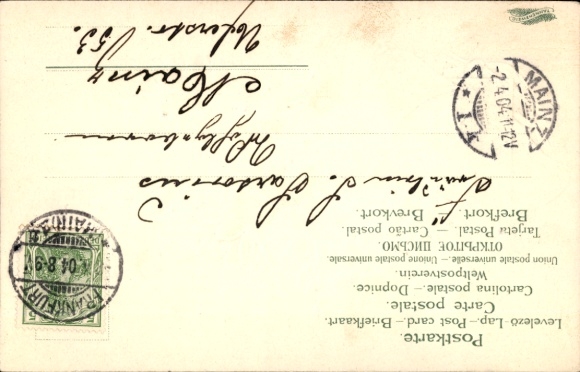 Postkarte.
Levelező-Lap. – Post card – Briefkaart.
Carte postale.
Cartolina postale. – Dopisnice.
Weltpostverein.
Union postale universelle. – Unione postale universale.
ОТКРЫТОЕ ПИСЬМО.
Tarjeta Postal. – Cartão postal.
Brefkort. – Brevkort.
Fräulein S. Sartorius
Mainz
Uferstr. 53.
MAINZ
-2.4.04.11-12V
* 1 *
FRANKFURT
(MAIN)
.04.8-9
5